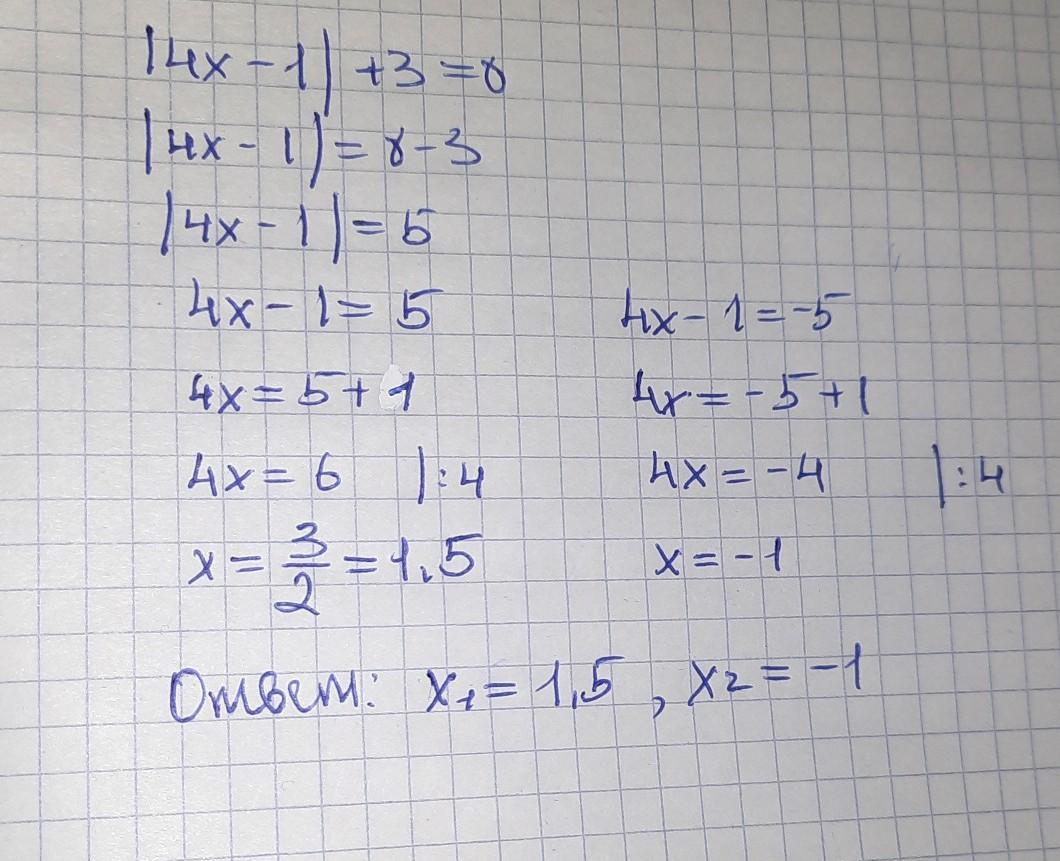 |4x - 1| + 3 = 8
|4x - 1| = 8 - 3
|4x - 1| = 5
4x - 1 = 5 4x - 1 = -5
4x = 5 + 1 4x = -5 + 1
4x = 6 |:4 4x = -4 |:4
x = 3/2 = 1,5 x = -1
Ответ: x₁ = 1,5 , x₂ = -1